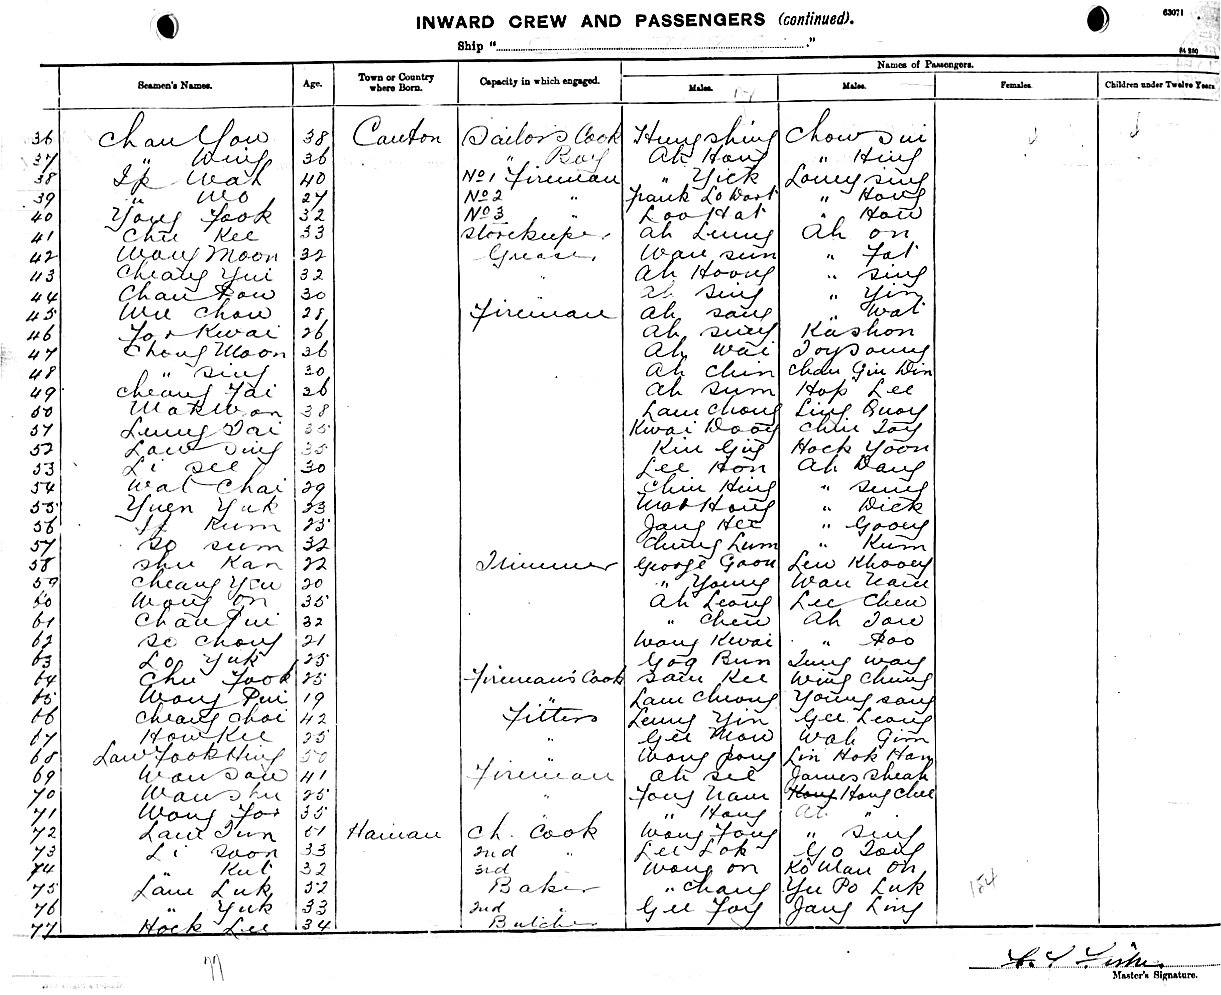 63071
INWARD CREW AND PASSENGERS (continued).
Ship "
Seamen's Names. Age. Town or Country where Born. Capacity in which engaged. Names of Passengers.
Males. Males. Females. Children under Twelve Years
36 Chau You 38 Canton Sailors Cook Hung Shing Chow Sui
37 " Wing 36 " Boy Ah Hong " Hing
38 Ip Wah 40 No 1 Fireman " Yick Louey Sing
39 " Wo 27 No 2 " Frank Lo Wort " Hong
40 Yong Fook 32 No 3 " Loo Hat " How
41 Chu Kee 33 Storekeeper Ah Leung Ah On
42 Wong Moon 32 Greaser Wau Sum " Fat
43 Cheang Yui 32 " Ah Hoong " Sing
44 Chau 30 Ah Sing " Yim
45 Wu Chow 28 Fireman Ah Sang " Wat
46 Kwai 26 Ah Suey Kashon
47 Chong Moon 36 Ah Wai
48 " Sing 30 Ah Chin Chau Gin Din
49 Cheang Tai 26 Ah Sum Hop Lee
50 Mak Won 38 Lam Chong Ling Quay
51 Leung Tai 35 Kwai Doog Chin Toy
52 Law Sing 35 Kin Gig Hock Yoon
53 Li See 30 Lee Hon Ah Dang
54 Wat Chai 29 Chin Hing " Sung
55 Yuen Yuk 23 Hong " Dick
56 Ip Kum 25 Jang Hee " Gooey
57 So Sum 32 Chung Lum " Kum
58 Shu Kan 22 Trimmer George Goon Leu Khooey
59 Cheang Yeu 20 " Young Wau Nam
60 Wong On 35 Ah Leong Lee Chew
61 Chau Pui 32 " Chew Ah Tow
62 So Chong 21 Wong Kwai " Foo
63 Lo Yuk 25 Gog Bun Tung Way
64 Chu Fook 25 Fireman's Cook Sam Kee Wing Chung
65 Wong Pui 19 " Lam Cheong Young Sang
66 Cheang Choi 42 Fitters Leung Yin Gee Leong
67 How Kee 25 " Gee Mow Wah Gim
68 Law Fook Hing 50 " Wong Pong Lin Hok Han
69 Wau Sau 41 Fireman Ah See James Sheah
70 Wau Shu 25 " Fong Nam Hong Chee
71 Wong For 35 " Hong Ah "
72 Lam Tun 51 Hainan Ch. Cook Wong Fong " Sing
73 Li Soon 33 2nd " Lee Lok Go Tong
74 " Kut 32 3rd " Wong On Ko Man On
75 Lam Luk 52 Baker " Chang Yu Po Luk
76 " Yuk 33 2nd " Gee Foy Jang Ling
77 Hock Lee 34 Butcher
154
77
Master's Signature.